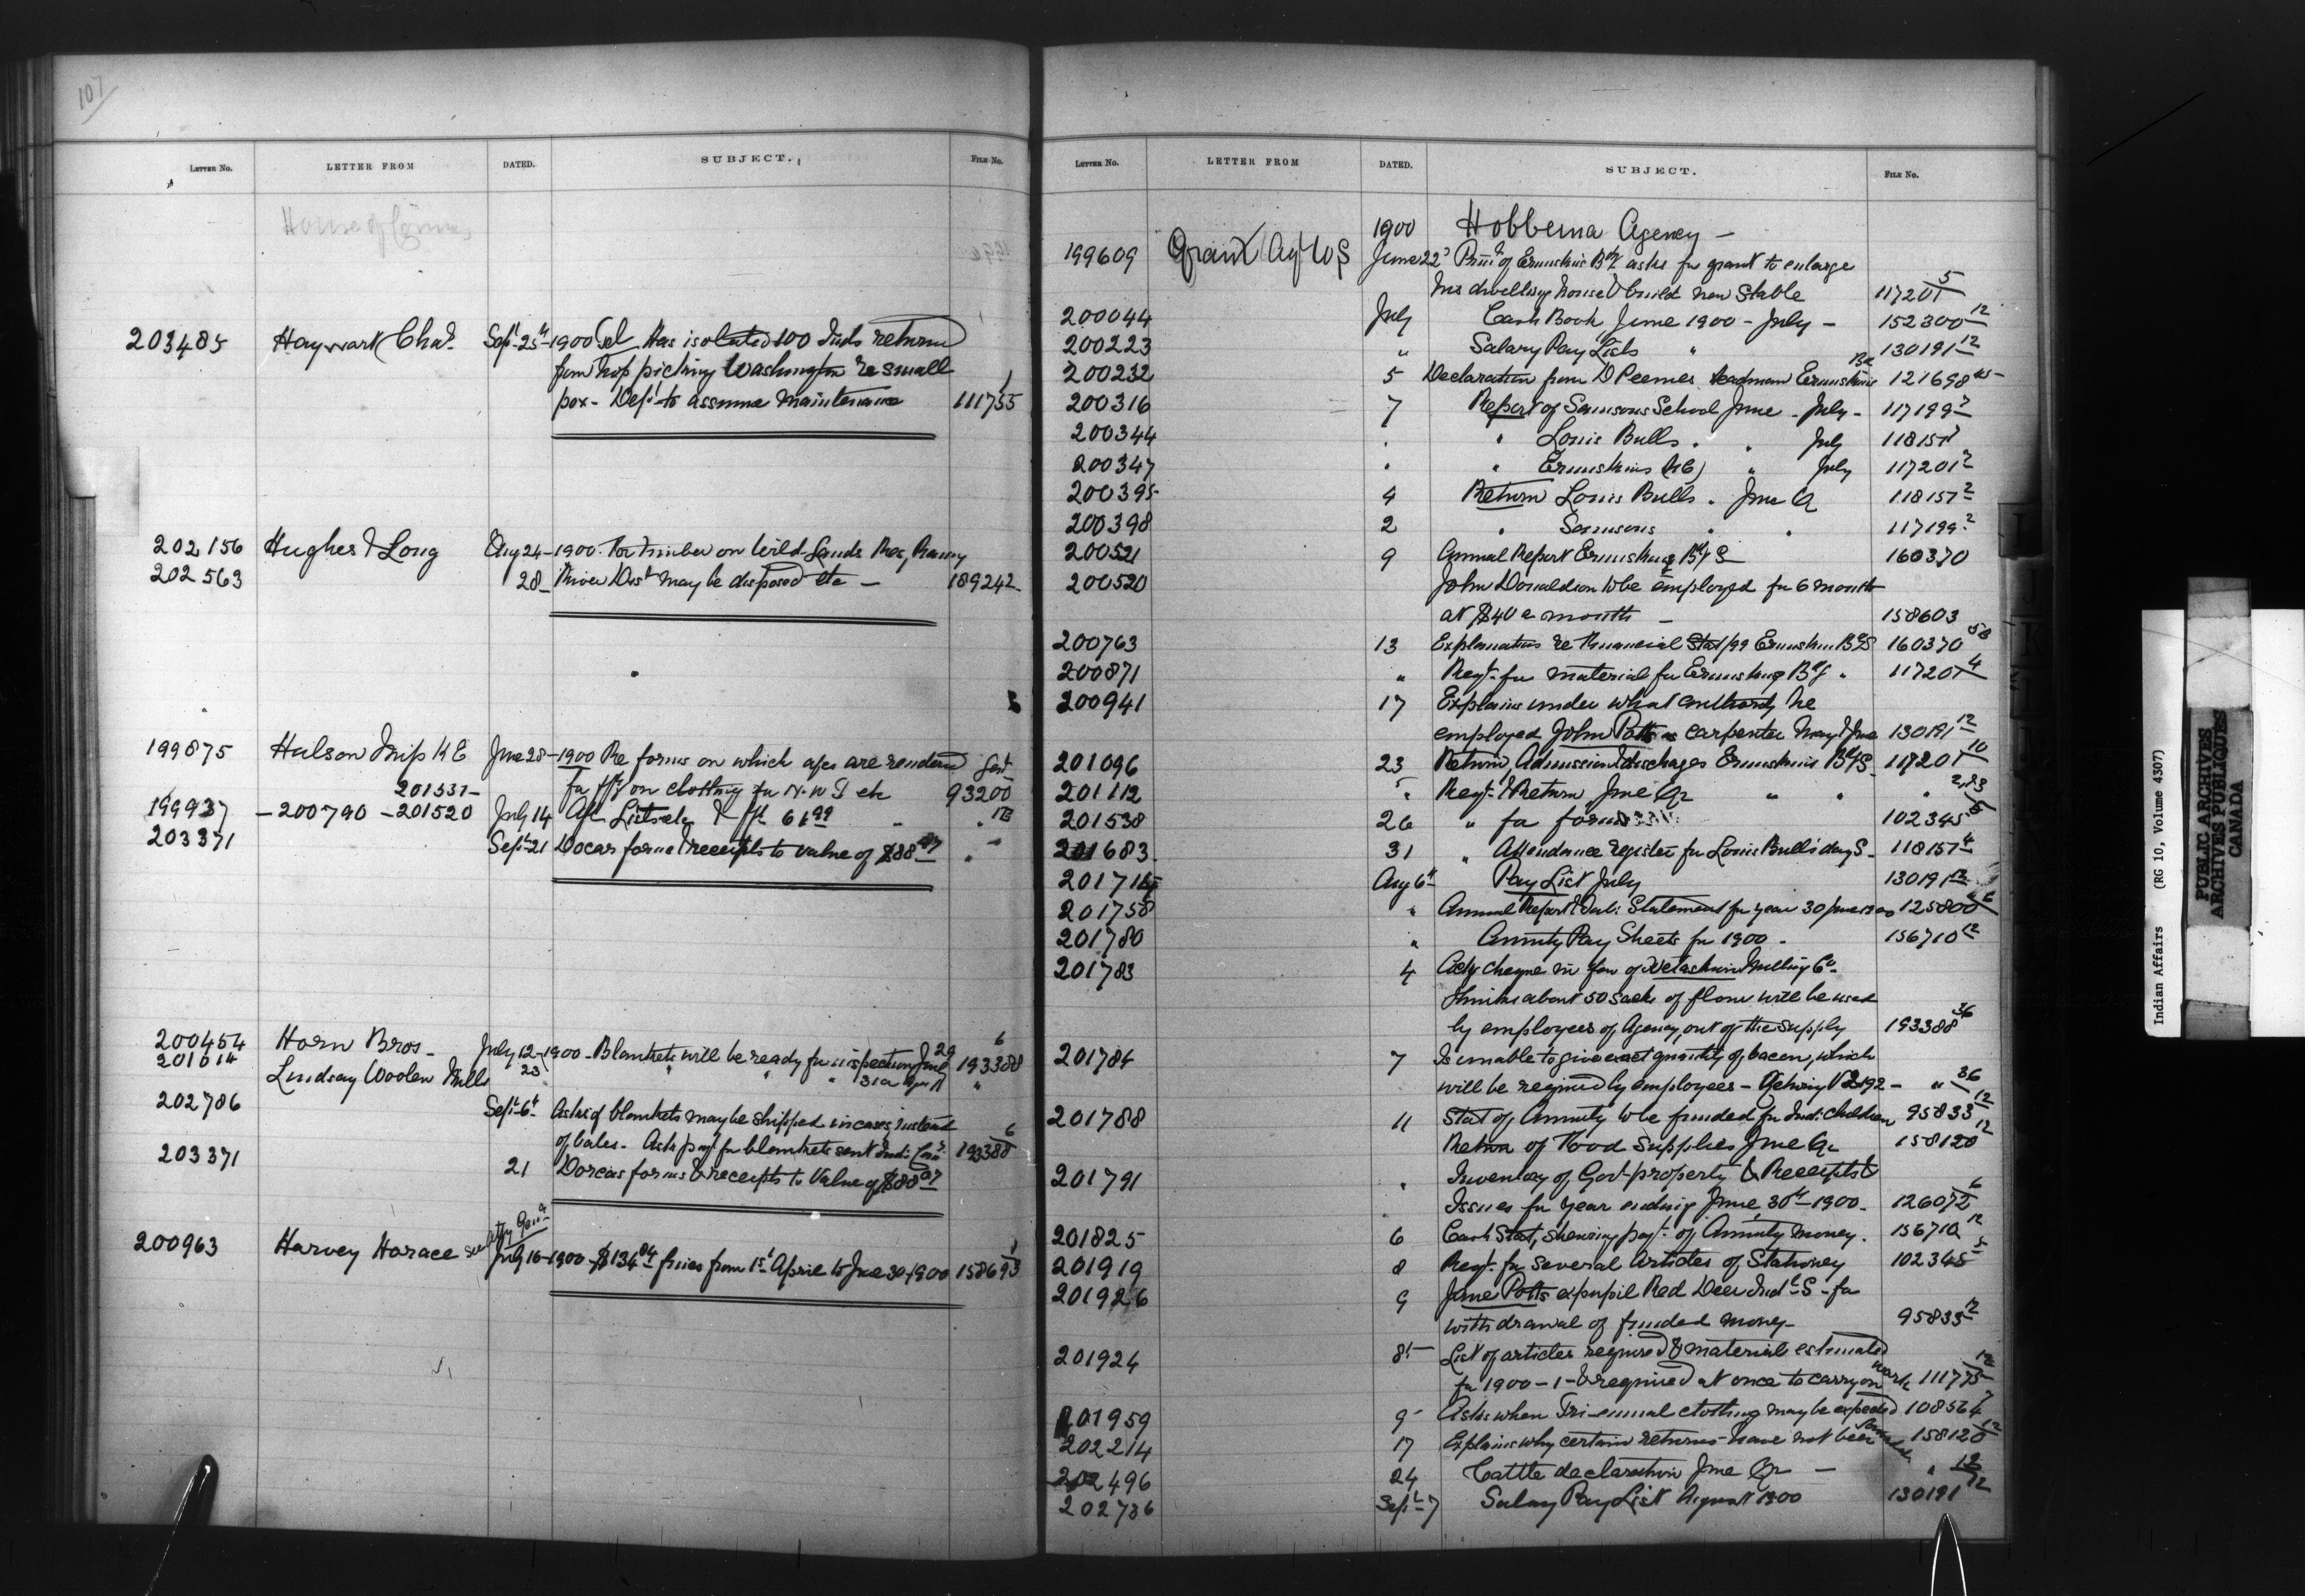 107
LETTER NO. LETTER FROM DATED. SUBJECT. FILE NO.
House of Commons
203485 Hayward Chas. Sept 25th 1900 Tel Has isolated 100 Inds returned
from hop picking Washington re small
pox - Dept to assume maintenance 111755 1
202156 Hughes & Long Aug 24 - 1900 - For timber on Wild Lands Res, Rainy
202563 28 - River Dist may be disposed etc - 189242 -
199875 Hulson Insp H E June 28 - 1900 Re forms on which a/cs are rendered
201531 - for on clothing for N. W. T etc 93200
199937 - 200790 - 201520 July 14
203371 Sept 21 Dorcas forms & receipts to value of $88 07
200454 Horn Bros - July 12 - 1900 - Blankets will be ready for inspection July 29 193388 6
201014 Lindsay Woolen Mills 23 " " " 31 or Aug 1st "
202786 Sept 6th Asks if blankets may be shipped in cases instead
of bales - Asks payt for blankets sent Ind: Comr 193388 6
203371 21 Dorcas forms & receipts to Value of $88 07
200963 Harvey Horace see Atty Genl July 16 - 1900 - $134 04 fines from 1st April to June 30 - 1900 158693 1
LETTER NO. LETTER FROM DATED. SUBJECT. FILE NO.
1900 Hobbema Agency -
199609 Grant Ag W S June 22 Prin of Ermineskins Bdg asks for grant to enlarge
his dwelling house & build new Stable 117201 5
200044 July Cash Book June 1900 - July - 152300 12
200223 " Salary Pay Lists " 130191 12
200232 5 Declaration from D Peemes headman Ermineskins Bd 121698
200316 7 Report of Samsons School June - July - 117199 2
200344 . " Louis Bulls . " July 118157
200347 . " Ermineskins (RC) " July 117201 2
200395 4 Return Louis Bulls . June Qr 118157 2
200398 2 " Samsons . . 117199 2
200521 9 Annual Report Ermineskins Bdg S 160370
200520 John Donaldson to be employed for 6 months
at $40 a month - 158603
200763 13 Explanations re Financial Stat /99 Ermineskin BdgS 160370 58
200871 " Reqt. for material for Ermineskins Bdg . 117201 4
200941 17 Explains under what authority he
employed John Potts as carpenter May & June 130191 12
201096 23 Return, Admission & discharges Ermineskins Bdg S - 117201 10
201112 " Reqt. & Return June Qr " " " 2,23
201538 26 " for forms 102345 5
201683 31 " Attendance register for Louis Bulls' day S - 118157 4
201715 Aug 6th Pay List July 130191 12
201758 " Annual Report & Tab: Statement for year 30 June 1900 125800 6
201780 " Annuity Pay Sheets for 1900 - 156710 12
201783 4 Acks cheque in fav of Wetaskiwin Milling Co.
Thinks about 50 sacks of flour will be used
by employees of Agency out of the supply 193388 36
201784 7 Is unable to give exact quantity of bacon, which
will be required by employees - - " 36
201788 11 Stat of Annuity to be funded for Ind: Children 95833 12
Return of Food Supplies June Qr 158120 12
201791 " Inventory of Govt property & Receipts &
Issues for year ending June 30th 1900 - 126072 6
201825 6 Cash Stat, showing payt. of Annuity money . 156710 12
201919 8 Reqt. for several Articles of Stationery 102345 5
201926 9 Jane Potts expupil Red Deer Indl S - for
withdrawal of funded money - 95833 12
201924 8th List of articles required & material estimated
for 1900 - 1 - & required at once to carry on work 111775 12
201959 9 Asks when Tri-ennial clothing may be expected 108564 7
202214 17 Explains why certain returns have not been 158120 12
202496 24 Cattle declaration June Qr - " 12
202736 Sept 7 Salary Pay List August 1900 130191 12
Indian Affairs (RG 10, Volume 4307)
PUBLIC ARCHIVES
ARCHIVES PUBLIQUES
CANADA